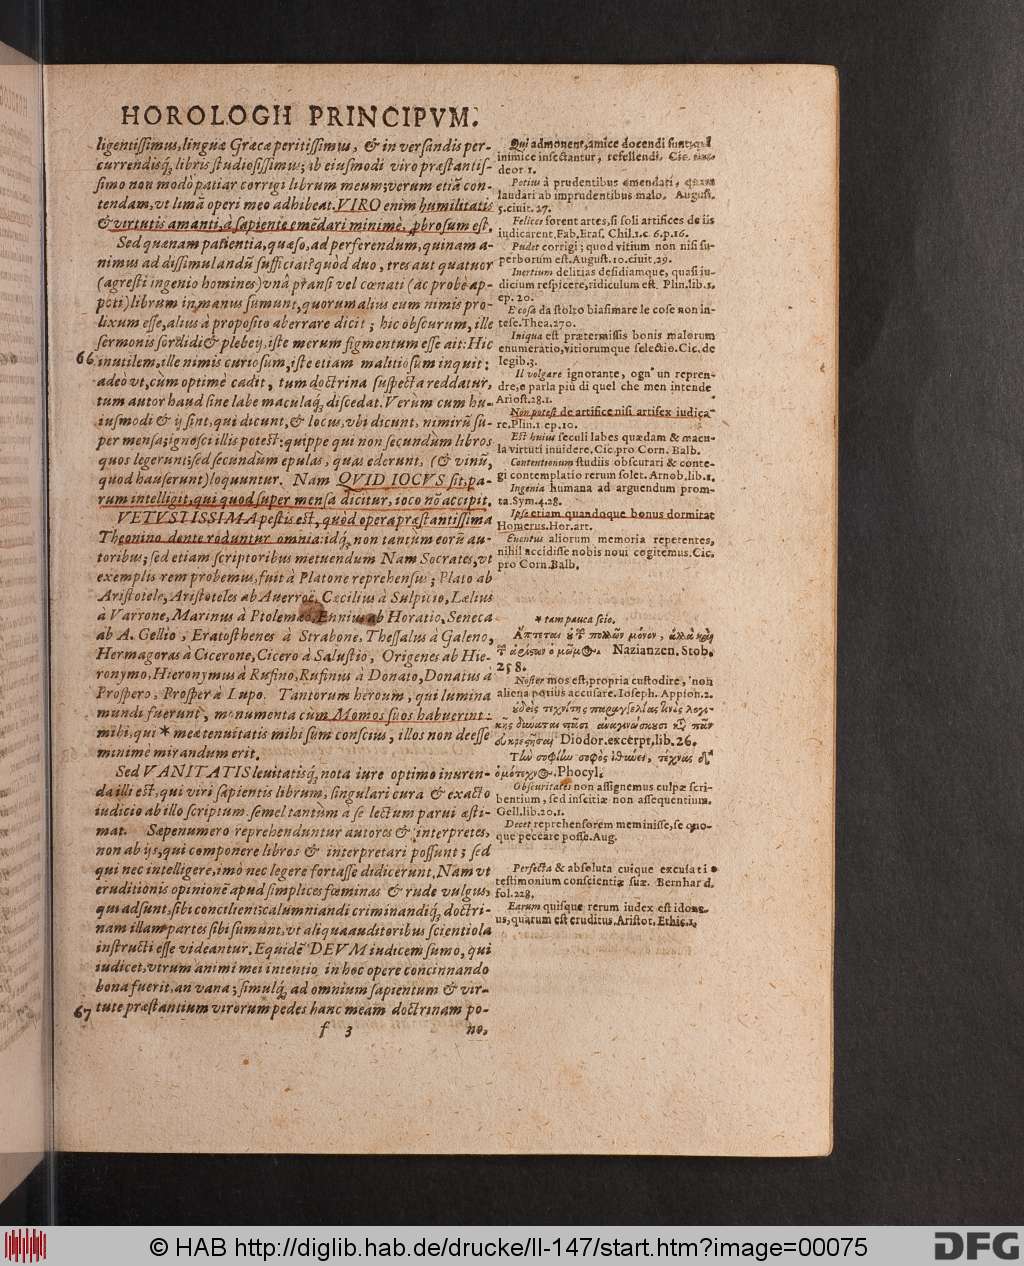 HOROLOGII PRINCIPVM.
ligentissimus, linguæ Græcæ peritissimus, & in versandis per-
currendisq́, libris studiosissimus; ab eiusmodi viro præstantis-
simo non modò patiar corrigi librum meum; verum etiā con-
tendam, vt limā operi meo adhibeat. VIRO enim humilitatis
& virtutis amanti, à sapiente emēdari minimè, ꝓbrosum est.
Sed quænam patientia, quæso, ad perferendum, quinam a-
nimus ad dissimulandū sufficiat? quòd duo, tres aut quatuor
(agresti ingenio homines) vnà pransi vel cœnati (ac probè ap-
poti) librum in manus sumunt, quorum alius eum nimis pro-
lixum esse, alius à proposito aberrare dicit; hic obscurum, ille
sermonis sordidi & plebeij, iste merum figmentum esse ait: Hic
66 inutilem, ille nimis curiosum, iste etiam malitiosum inquit:
adeò vt, cùm optimè cadit, tum doctrina suspecta reddatur,
tum autor haud sine labe maculaq́; discedat. Verùm cum hu-
iusmodi & ij sint, qui dicunt, & locus, vbi dicunt, nimirū su-
per mensa; ignosci illis potest: quippe qui non secundum libros
quos legerunt; sed secundùm epulas, quas ederunt, (& vinū,
quod hauserunt) loquuntur. Nam QVID IOCVS sit, pa-
rum intelligit, qui quod super mensa dicitur, ioco nō accipit.
VETVSTISSIMA pestis est, quòd opera præstantissima
Theonino dente roduntur omnia: idq́, non tantùm eorū au-
toribus; sed etiam scriptoribus metuendum Nam Socrates, vt
exemplis rem probemus, fuit à Platone reprehensus; Plato ab
Aristotele, Aristoteles ab Auerroë, Cæcilius à Sulpicio, Lælius
à Varrone, Marinus à Ptolemæo, Ennius ab Horatio, Seneca
ab A. Gellio, Eratosthenes à Strabone, Thessalus à Galeno,
Hermagoras à Cicerone, Cicero à Salustio, Origenes ab Hie-
ronymo, Hieronymus à Rufino, Rufinus à Donato, Donatus à
Prospero, Prosper à Lupo. Tantorum heroum, qui lumina
mundi fuerunt, monumenta cùm Momos suos habuerint:
mihi, qui * meæ tenuitatis mihi sum conscius, illos non deesse
minimè mirandum erit.
Sed VANITATIS leuitatisq́, nota iure optimo inuren-
da illi est, qui viri sapientis librum, singulari cura & exacto
iudicio ab illo scriptum, semel tantùm a se lectum parui æsti-
mat. Sæpenumero reprehenduntur autores & interpretes,
non ab ijs, qui componere libros & interpretari possunt; sed
qui nec intelligere, imò nec legere fortasse didicerunt. Nam vt
eruditionis opinionē apud simplices fœminas & rude vulgus,
qui adsunt, sibi concilient; calumniandi criminandiq́, doctri-
nam illam partes sibi sumunt, vt aliqua auditoribus scientiola
instructi esse videantur. Equidē DEVM iudicem sumo, qui
iudicet, vtrum animi mei intentio in hoc opere concinnando
bona fuerit, an vana; simulq́, ad omnium sapientum & vir-
67 tute præstantium virorum pedes hanc meam doctrinam po-
f 3 no,
Qui admonent, amice docendi sunt; qui
inimice insectantur, refellendi. Cic.
deor 1.
Potius à prudentibus emendari, quam
laudari ab imprudentibus malo. August.
5.ciuit. 27.
Felices forent artes, si soli artifices de iis
iudicarent. Fab. Eras. Chil. 1. c. 6. p. 16.
Pudet corrigi; quod vitium non nisi su-
perborum est. August. 10. ciuit. 29.
Inertium delitias desidiamque, quasi iu-
dicium respicere, ridiculum est. Plin. lib. 1.
ep. 20.
E cosa da stolto biasimare le cose non in-
tese. Thea. 270.
Iniqua est prætermissis bonis malorum
enumeratio, vitiorumque selectio. Cic. de
legib. 3.
Il volgare ignorante, ogn' un repren-
dre, e parla più di quel che men intende
Ariost. 28.1.
Non potest de artifice nisi artifex iudica-
re. Plin. 1 ep. 10.
Est huius seculi labes quædam & macu-
la virtuti inuidere. Cic. pro Corn. Balb.
Contentionum studiis obscurari & conte-
gi contemplatio rerum solet. Arnob. lib. 1.
Ingenia humana ad arguendum prom-
ta. Sym. 4. 28.
Ipse etiam quandoque bonus dormitat
Homerus. Hor. art.
Euentus aliorum memoria repetentes,
nihil accidisse nobis noui cogitemus. Cic.
pro Corn. Balb.
* tam pauca scio.
Ἅπτεται οὐ τ πολλῶν μόνον, ἀλλὰ καὶ
τ ἀρίστων ὁ μῶμος. Nazianzen. Stob.
258.
Noster mos est, propria custodire, non
aliena potius accusare. Ioseph. Appion. 2.
Diodor. excerpt. lib. 26.
Phocyl.
Obscuritates non assignemus culpæ scri-
bentium, sed inscitiæ non assequentium.
Gell. lib. 20. 1.
Decet reprehensorem meminisse, se quo-
que peccare posse. Aug.
Perfecta & absoluta cuique excusati o
testimonium conscientiæ suæ. Bernhard.
fol. 228.
Earum quisque rerum iudex est idone-
us, quarum est eruditus. Aristot. Ethic. 1.
© HAB http://diglib.hab.de/drucke/ll-147/start.htm?image=00075
DFG